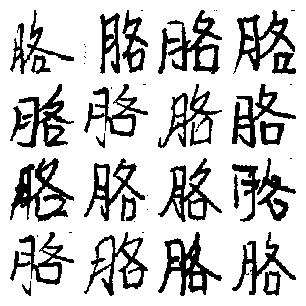 胳胳胳胳
胳胳胳胳
胳胳胳胳
胳胳胳胳